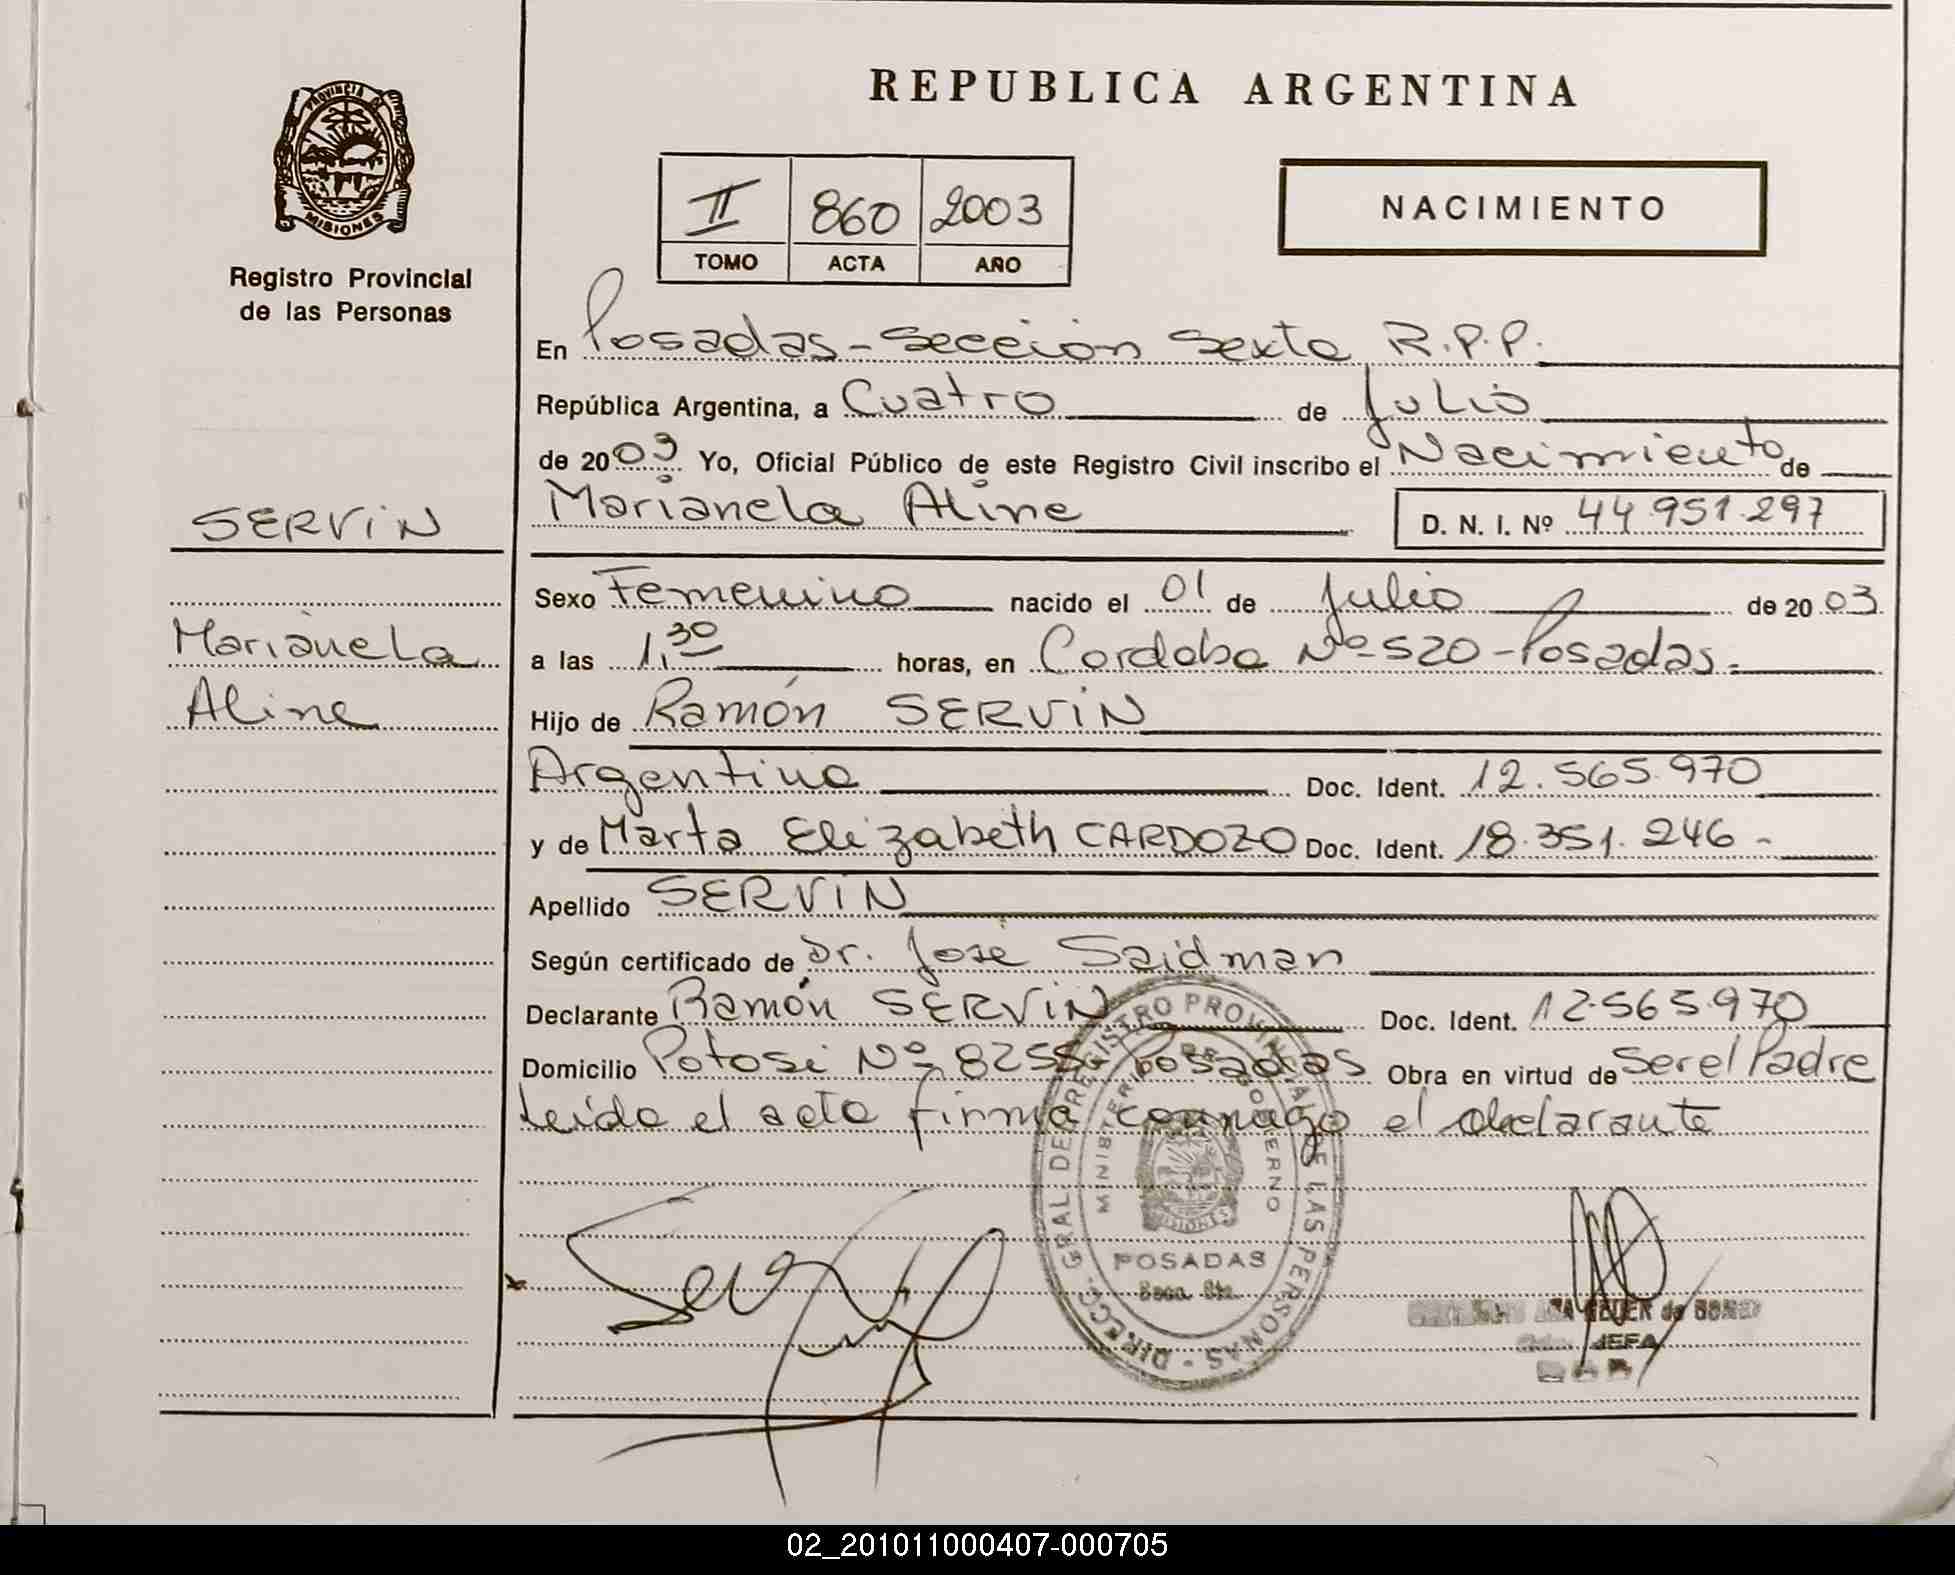 REPUBLICA ARGENTINA
PROVINCIA DE
MISIONES
Registro Provincial
de las Personas
II 860 2003
TOMO ACTA AÑO
NACIMIENTO
En Posadas - Sección Sexta R.P.P.
República Argentina, a Cuatro de Julio
de 2003 Yo, Oficial Público de este Registro Civil inscribo el Nacimiento de
Marianela Aline D. N. I. Nº 44.951.297
SERVIN
Marianela
Aline
Sexo Femenino nacido el 01 de Julio de 2003
a las 1,30 horas, en Cordoba Nº 520 - Posadas.
Hijo de Ramón SERVIN
Argentina Doc. Ident. 12.565.970
y de Marta Elizabeth CARDOZO Doc. Ident. 18.351.246 -
Apellido SERVIN
Según certificado de Dr. José Saidman
Declarante Ramón SERVIN Doc. Ident. 12.565.970
Domicilio Potosi Nº 8255 Posadas Obra en virtud de Ser el Padre
Leida el acta firma conmigo el declarante
DIRECC. GRAL DEL REGISTRO PROVINCIAL DE LAS PERSONAS
MINISTERIO DE GOBIERNO
MISIONES
POSADAS
Secc. 6ta.
JEFA
02_201011000407-000705